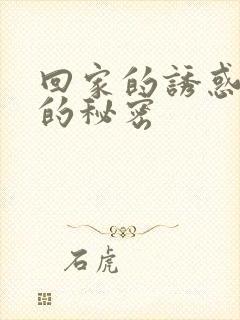 回家的誘惑
的秘密
石虎